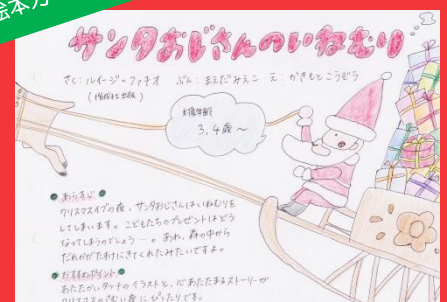 絵本ガ
サンタおじさんのいねむり
さく：ルイージ=ファチオ　ぶん：まえだみえこ　え：かきもとこうぞう
（偕成社出版）
対象年齢
3, 4歳 〜
●あらすじ●
クリスマスイブの夜、サンタおじさんはいねむりを
してしまいます。こどもたちのプレゼントはどう
なってしまうのでしょう―。あれ、森の中から
だれかがたすけにきてくれたみたいですよ。
●おすすめポイント●
あたたかいタッチのイラストと、心あたたまるストーリーが
クリスマスのさむい夜にぴったりです。